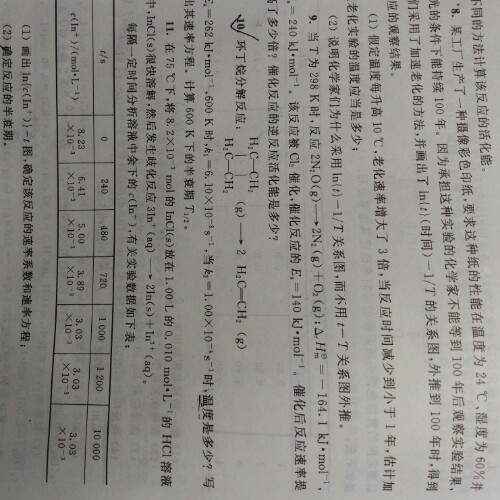 不同的方法计算该反应的活化能。
*8. 某工厂生产了一种摄像彩色印纸,要求这种纸的性能在温度为 24 ℃、湿度为 60%并
光的条件下能持续 100 年。因为承担这种实验的化学家不能等到 100 年后观察实验结果,
们采用了加速老化的方法,并画出了 ln(t)(时间)−1/T 的关系图,外推到 100 年时,得到
应的观察结果。
(1) 假定温度每升高 10 ℃,老化速率增大了 3 倍,当反应时间减少到小于 1 年,估计加
老化实验的温度应当是多少;
(2) 说明化学家们为什么采用 ln(t)−1/T 关系图,而不用 t−T 关系图外推。
9. 当 T 为 298 K 时,反应 2N₂O(g)⟶2N₂(g)+O₂(g);ΔᵣHₘ⊖=−164.1 kJ·mol⁻¹,
=240 kJ·mol⁻¹。该反应被 Cl₂ 催化,催化反应的 Eₐ=140 kJ·mol⁻¹。催化后反应速率提
了多少倍?催化反应的逆反应活化能是多少?
10. 环丁烷分解反应:
H₂C—CH₂
H₂C—CH₂ (g) ⟶ 2 H₂C=CH₂ (g)
=262 kJ·mol⁻¹,600 K 时,k₁=6.10×10⁻⁸ s⁻¹,当 k₂=1.00×10⁻⁴ s⁻¹时,温度是多少?写
出其速率方程。计算 600 K 下的半衰期 T₁/₂。
11. 在 75℃下,将 8.2×10⁻³ mol 的 InCl(s)放在 1.00 L 的 0.010 mol·L⁻¹的 HCl 溶液
中,InCl(s)很快溶解,然后发生歧化反应 3In⁺(aq) ⟶ 2In(s)+In³⁺(aq)。
每隔一定时间分析溶液中余下的 c(In⁺),有关实验数据如下表:
t/s 0 240 480 720 1 000 1 200 10 000
c(In⁺)/(mol·L⁻¹) 8.23×10⁻³ 6.41×10⁻³ 5.00×10⁻³ 3.89×10⁻³ 3.03×10⁻³ 3.03×10⁻³ 3.03×10⁻³
(1) 画出 ln[c(In⁺)]−t 图,确定该反应的速率系数和速率方程;
(2) 确定反应的半衰期。